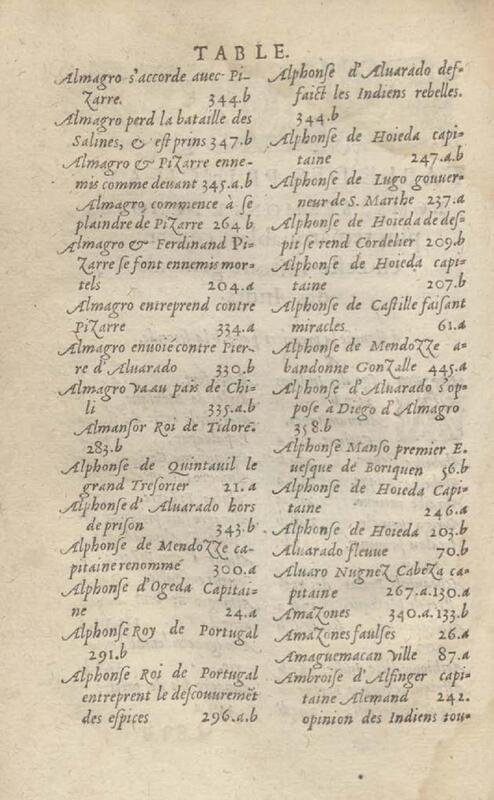 TABLE.
Almagro s'accorde auec Pi-
zarre. 344.b
Almagro perd la bataille des
Salines, & est prins 347.b
Almagro & Pizarre enne-
mis comme deuant 345.a.b
Almagro commence à se
plaindre de Pizarre 264 b
Almagro & Ferdinand Pi-
zarre se font ennemis mor-
tels 204.a
Almagro entreprend contre
Pizarre 334.a
Almagro enuoié contre Pier-
re d'Aluarado 330.b
Almagro va au païs de Chi-
li 335.a.b
Almansor Roi de Tidore.
283.b
Alphonse de Quintauil le
grand Tresorier 21.a
Alphonse d'Aluarado hors
de prison 343.b
Alphonse de Mendozze ca-
pitaine renommé 300.a
Alphonse d'Ogeda Capitai-
ne 24.a
Alphonse Roy de Portugal
291.b
Alphonse Roi de Portugal
entreprent le descouuremẽt
des espices 296.a.b
Alphonse d'Aluarado def-
faict les Indiens rebelles.
344.b
Alphonse de Hoieda capi-
taine 247.a.b
Alphonse de Lugo gouuer-
neur de S. Marthe 237.a
Alphonse de Hoieda de des-
pit se rend Cordelier 209.b
Alphonse de Hoieda capi-
taine 207.b
Alphonse de Castille faisant
miracles 61.a
Alphonse de Mendozze a-
bandonne Gonzalle 445.a
Alphonse d'Aluarado s'op-
pose à Diego d'Almagro
358.b
Alphonse Manso premier E-
uesque de Boriquen 56.b
Alphonse de Hoieda Capi-
taine 246.a
Alphonse de Hoieda 203.b
Aluarado fleuue 70.b
Aluaro Nugnez Cabeza ca-
pitaine 267.a.130.a
Amazones 340.a.133.b
Amazones faulses 26.a
Amaguemacan ville 87.a
Ambroise d'Alfinger capi-
taine Alemand 242.
opinion des Indiens tou-